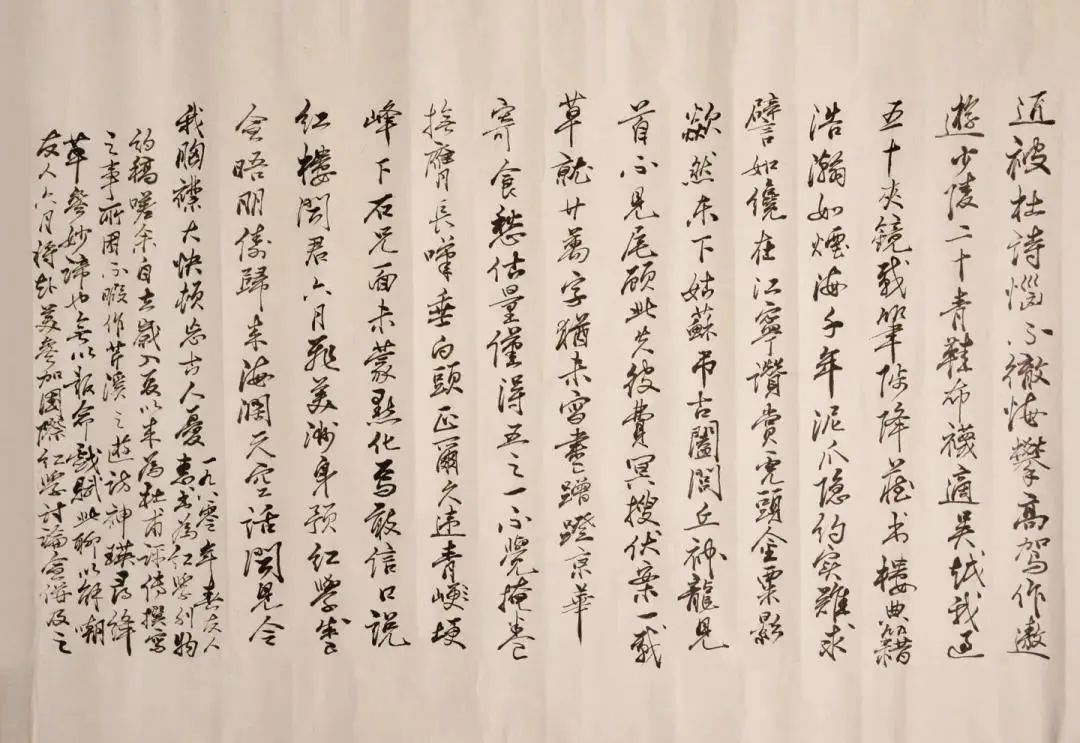 近被杜詩惱不徹悔攀高駕作遨
遊少陵二十青鞋布襪適吳越我過
五十夾鏡載筆陟降藏书樓典籍
浩瀚如煙海千年泥爪隐約实難求
譬如僥在江寧讚賞虎頭金粟影
欻然未下姑蘇吊古闔閭丘神龍見
首不見尾顧此失彼費冥搜伏案一載
草就廿萬字猶未書蹭蹬京華
寄食愁估量僅得五之一不覺掩卷
撫膺長嘆垂白頭正爾久違青埂
峰下石兄面未蒙點化焉敢信口說
红樓聞君六月飛美洲身預红學盛
会晤朋儔歸来海濶天空話聞見令
我胸襟大快頓忘古人憂 一九八零年春友人
書為红學刊物
約稿嗟余自去歲入夏以来為杜甫評傳撰寫
之事所困不暇作芹溪之遊訪神瑛尋絳
草參妙諦也無以報命戲賦此聊以解嘲
友人六月將赴美參加國際红學討論會併及之